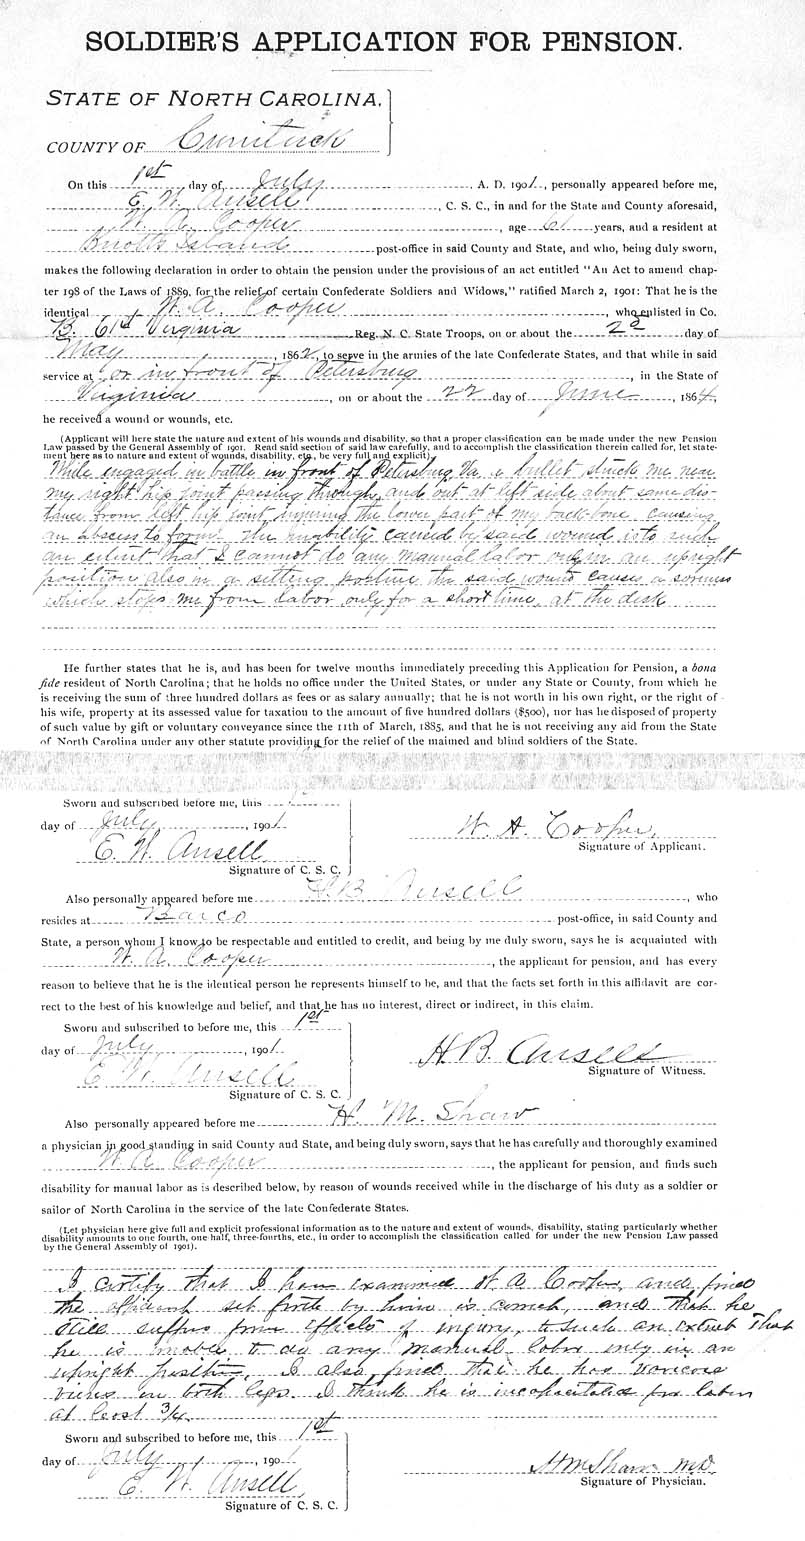 SOLDIER'S APPLICATION FOR PENSION.
STATE OF NORTH CAROLINA,
COUNTY OF Currituck
On this 1st day of July, A. D. 1901, personally appeared before me,
E. W. Ansell, C. S. C., in and for the State and County aforesaid,
W. A. Cooper, age 61 years, and a resident at
Knotts Island post-office in said County and State, and who, being duly sworn,
makes the following declaration in order to obtain the pension under the provisions of an act entitled "An Act to amend chap-
ter 198 of the Laws of 1889, for the relief of certain Confederate Soldiers and Widows," ratified March 2, 1901: That he is the
identical W. A. Cooper, who enlisted in Co.
B. 61st Virginia Reg. N. C. State Troops, on or about the 2d day of
May, 1862, to serve in the armies of the late Confederate States, and that while in said
service at or in front of Petersburg, in the State of
Virginia, on or about the 22 day of June, 1864,
he received a wound or wounds, etc.
(Applicant will here state the nature and extent of his wounds and disability, so that a proper classification can be made under the new Pension
Law passed by the General Assembly of 1901. Read said section of said law carefully, and to accomplish the classification therein called for, let state-
ment here as to nature and extent of wounds, disability, etc., be very full and explicit)
While engaged in battle in front of Petersburg Va a bullet struck me near
my right hip joint passing through, and out at left side about same dis-
tance from left hip joint, injuring the lower part of my back-bone, causing
an absess to form. The inability caused by said wound is to such
an extent that I cannot do any manual labor only in an upright
position also in a setting posture the said wound causes a soreness
which stops me from labor only for a short time, at the desk
He further states that he is, and has been for twelve months immediately preceding this Application for Pension, a bona
fide resident of North Carolina; that he holds no office under the United States, or under any State or County, from which he
is receiving the sum of three hundred dollars as fees or as salary annually; that he is not worth in his own right, or the right of
his wife, property at its assessed value for taxation to the amount of five hundred dollars ($500), nor has he disposed of property
of such value by gift or voluntary conveyance since the 11th of March, 1885, and that he is not receiving any aid from the State
of North Carolina under any other statute providing for the relief of the maimed and blind soldiers of the State.
Sworn and subscribed before me, this
day of July, 1901
W. A. Cooper,
E. W. Ansell
Signature of Applicant.
Signature of C. S. C.
Also personally appeared before me H. B. Ansell, who
resides at Barco post-office, in said County and
State, a person whom I know to be respectable and entitled to credit, and being by me duly sworn, says he is acquainted with
W. A. Cooper, the applicant for pension, and has every
reason to believe that he is the identical person he represents himself to be, and that the facts set forth in this affidavit are cor-
rect to the best of his knowledge and belief, and that he has no interest, direct or indirect, in this claim.
Sworn and subscribed to before me, this 1st
day of July, 1901
H. B. Ansell
E. W. Ansell
Signature of Witness.
Signature of C. S. C.
Also personally appeared before me H. M. Shaw
a physician in good standing in said County and State, and being duly sworn, says that he has carefully and thoroughly examined
W. A. Cooper, the applicant for pension, and finds such
disability for manual labor as is described below, by reason of wounds received while in the discharge of his duty as a soldier or
sailor of North Carolina in the service of the late Confederate States.
(Let physician here give full and explicit professional information as to the nature and extent of wounds, disability, stating particularly whether
disability amounts to one fourth, one-half, three-fourths, etc., in order to accomplish the classification called for under the new Pension Law passed
by the General Assembly of 1901).
I certify that I have examined W A Cooper, and find
the affidavit set forth by him is correct, and that he
still suffers from effects of injury, to such an extent that
he is unable to do any manual labor only in an
upright position, I also find that he has varicose
viens in both legs. I think he is incapacitated for labor
at least 3/4.
Sworn and subscribed to before me, this 1st
day of July, 1901
H M Shaw MD.
E. W. Ansell,
Signature of Physician.
Signature of C. S. C.